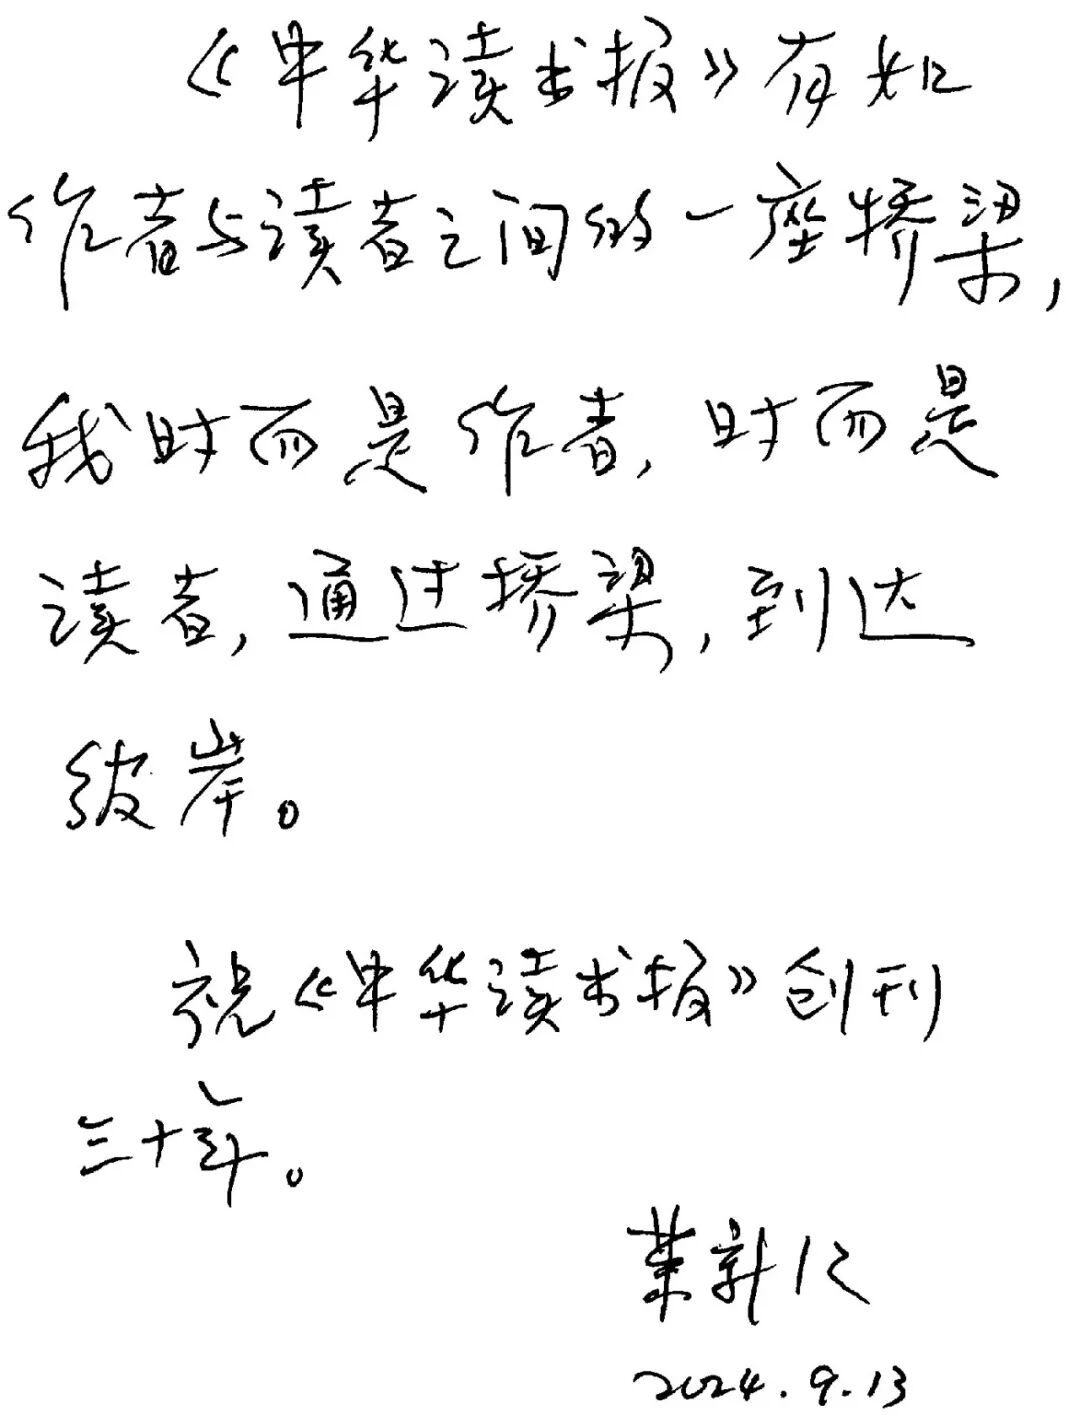 《中华读书报》有如
作者与读者之间的一座桥梁,
我时而是作者,时而是
读者,通过桥梁,到达
彼岸。
祝《中华读书报》创刊
三十年。
叶新仁
2024.9.13